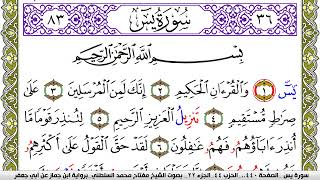 ٣٦ سُورَةُ يسٓ ٨٣
بِسْمِ اللَّهِ الرَّحْمَٰنِ الرَّحِيمِ
يسٓ ١ وَالْقُرْءَانِ الْحَكِيمِ ٢ إِنَّكَ لَمِنَ الْمُرْسَلِينَ ٣ عَلَىٰ
صِرَٰطٍ مُّسْتَقِيمٍ ٤ تَنزِيلُ الْعَزِيزِ الرَّحِيمِ ٥ لِتُنذِرَ قَوْمًا مَّا
أُنذِرَ ءَابَآؤُهُمْ فَهُمْ غَٰفِلُونَ ٦ لَقَدْ حَقَّ الْقَوْلُ عَلَىٰ أَكْثَرِهِمْ
سورة يس . الصفحة ٤٤٠ . الحزب ٤٤ . الجزء ٢٢ . بصوت الشيخ مفتاح محمد السلطني . برواية ابن جماز عن أبي جعفر